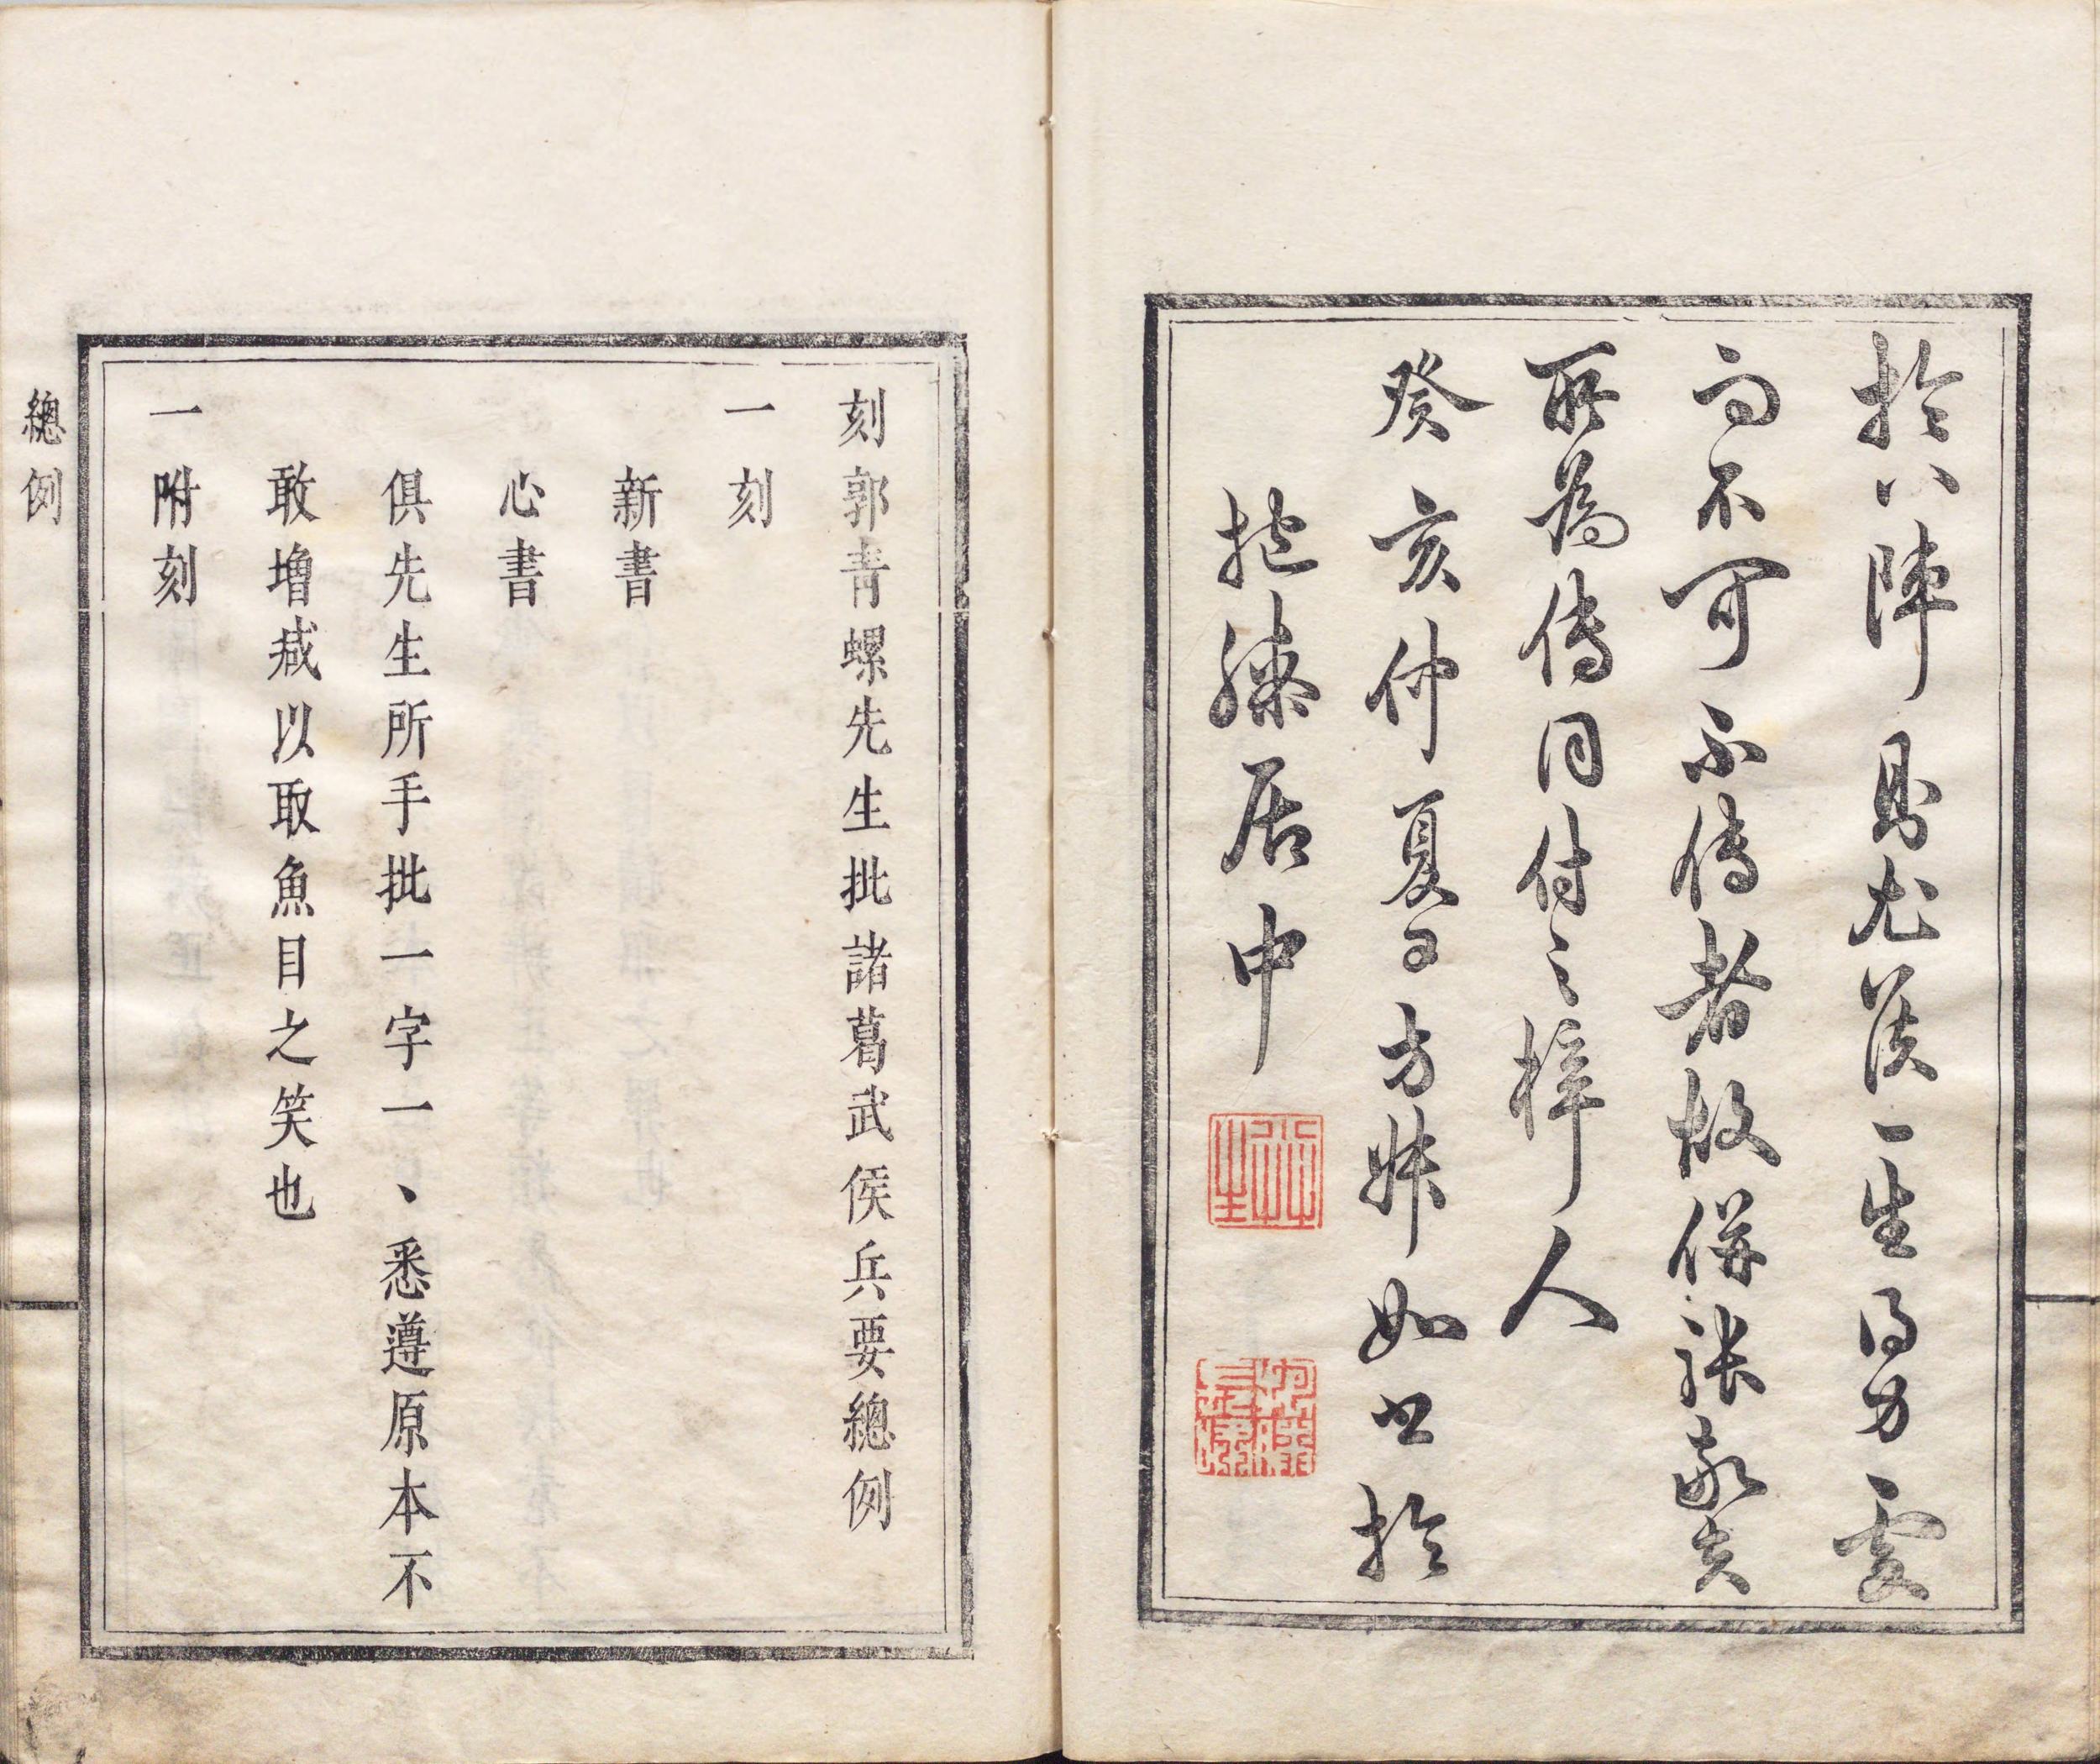 於八陣尤侯一生得力處
而不可不傳者故併張敬夫
所為傳同付之梓人
癸亥仲夏方如書於
抱膝居中
刻郭青螺先生批諸葛武侯兵要總例
一刻
新書
心書
俱先生所手批一字一、悉遵原本不
敢增减以取魚目之笑也
一附刻
總例